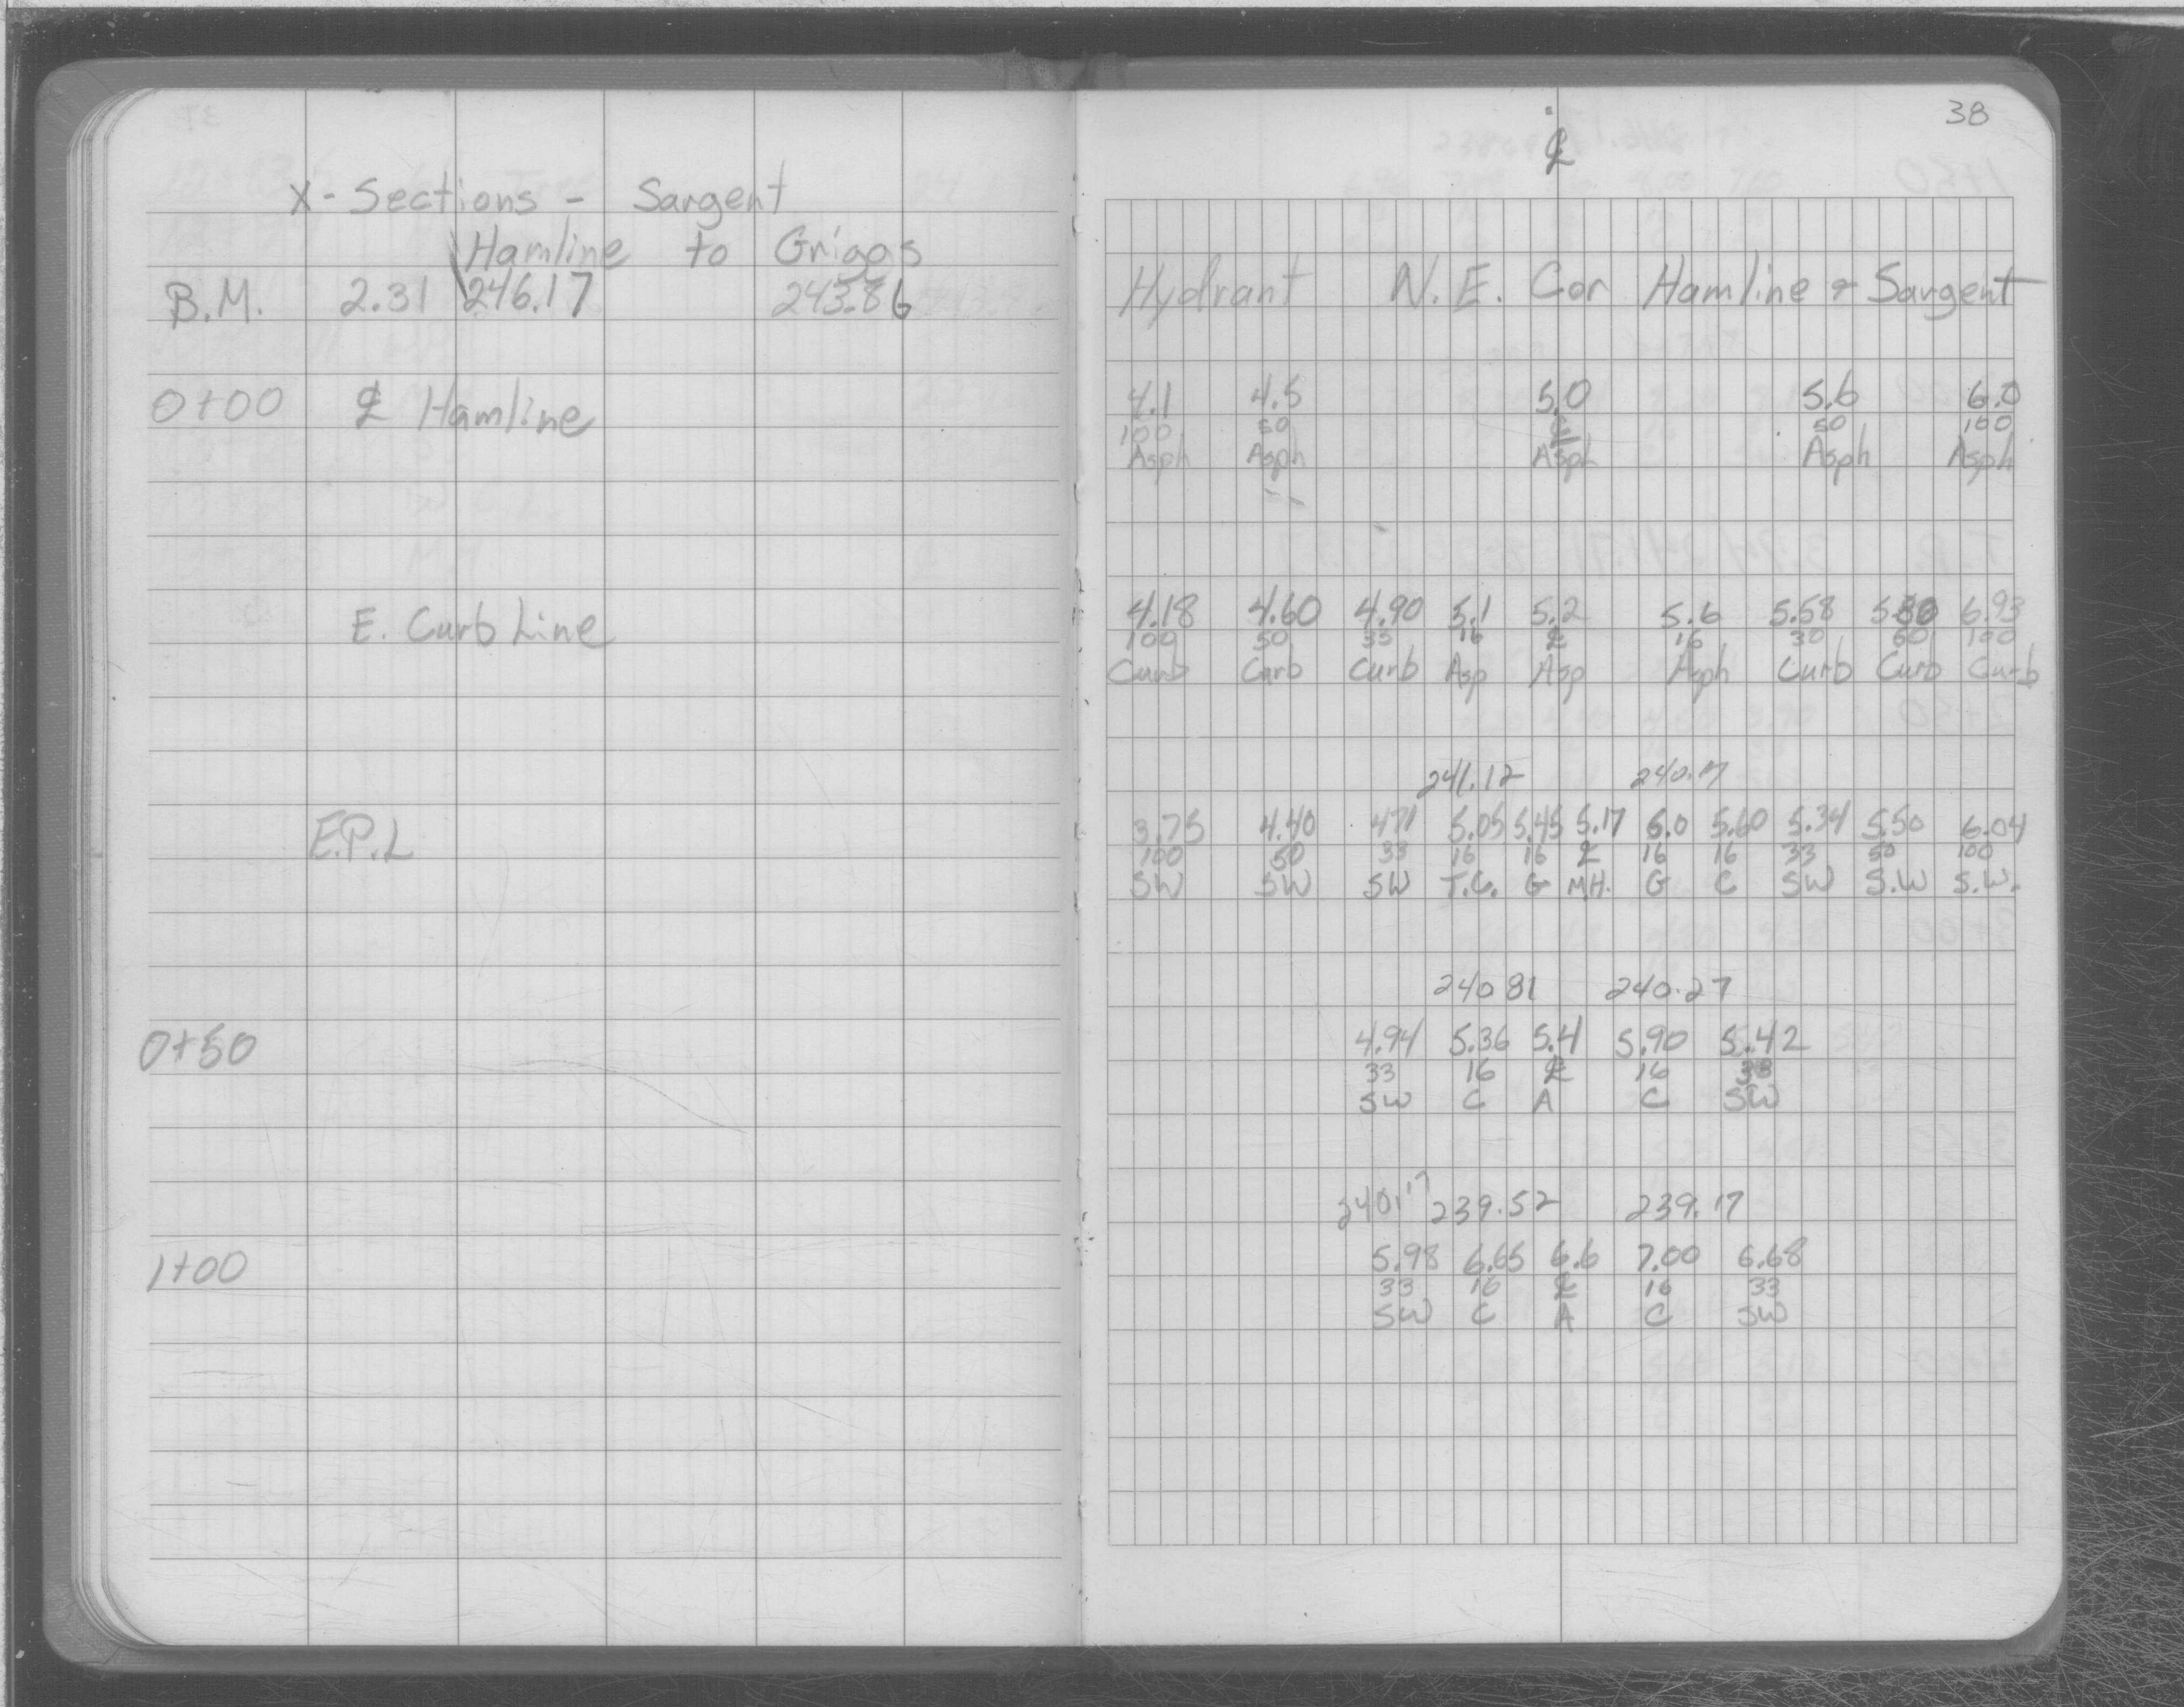 X-Sections - Sargent
Hamline to Griggs
B.M. 2.31 246.17 243.86
0+00 ℄ Hamline
E. Curb Line
E.P.L
0+50
1+00
38
℄
Hydrant N.E. Cor Hamline & Sargent
4.1 4.5 5.0 5.6 6.0
100 50 ℄ 50 100
Asph Asph Asph Asph Asph
4.18 4.60 4.90 5.1 5.2 5.6 5.58 6.93
100 50 33 16 ℄ 16 30 100
Curb Curb Curb Asp Asp Asph Curb Curb Curb
241.12 240.17
3.75 4.40 4.71 5.05 5.45 5.17 6.0 5.60 5.34 5.50 6.04
100 50 33 16 16 ℄ 16 16 33 50 100
SW SW SW T.C. G M.H. G C SW S.W S.W.
240 81 240.27
4.94 5.36 5.4 5.90 5.42
33 16 ℄ 16 33
SW C A C SW
240.17 239.52 239.17
5.98 6.65 6.6 7.00 6.68
33 16 ℄ 16 33
SW C A C SW